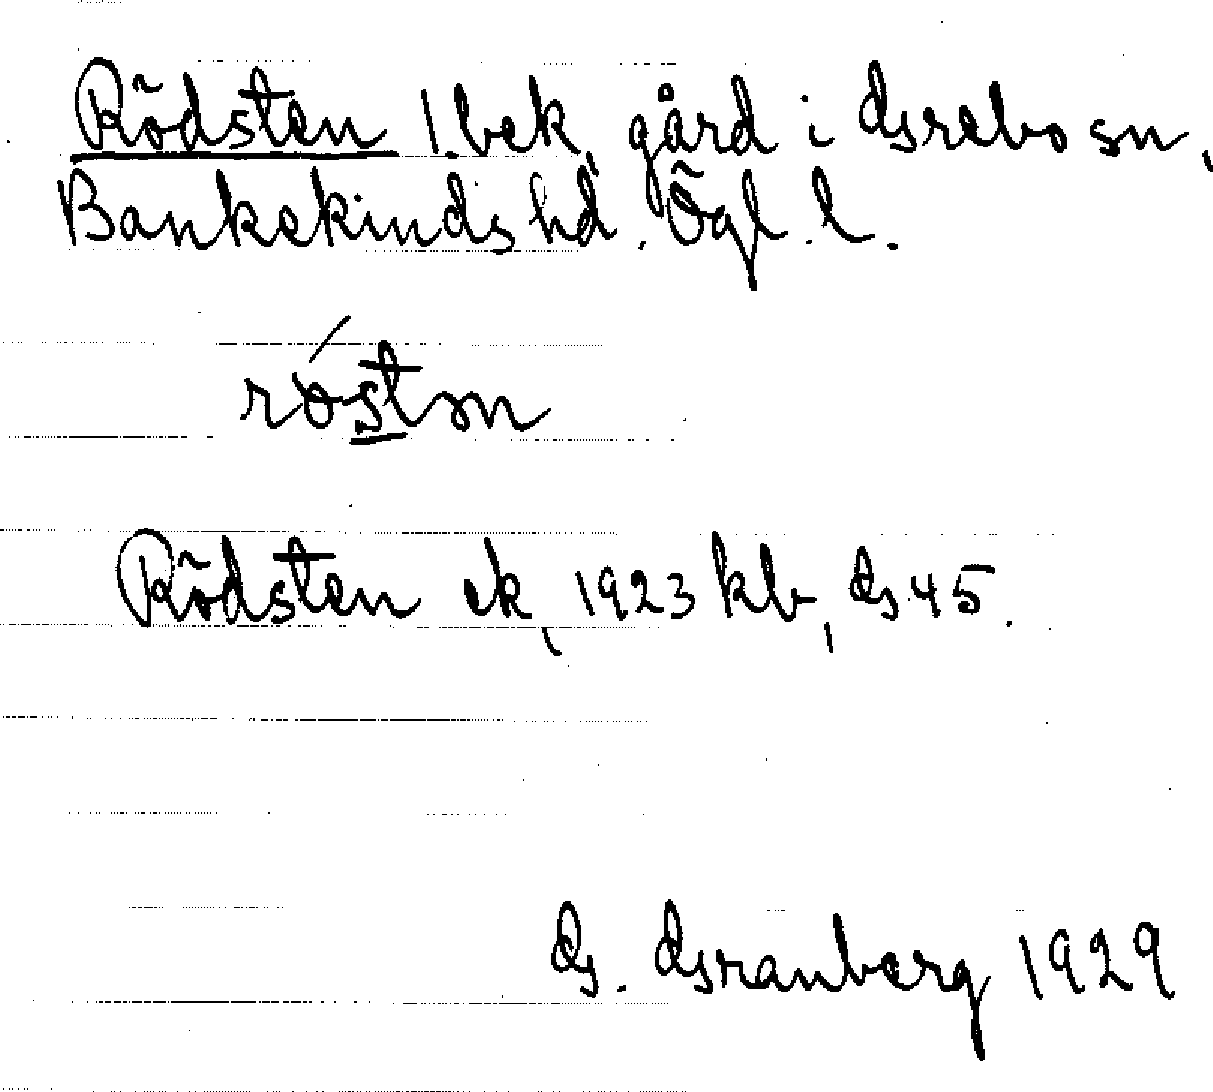 Rödsten 1 bek. gård i Grebo sn,
Bankekinds hd. Ögl. l.
röstn
Rödsten ek, 1923 kb, G 45.
G. Granberg 1929